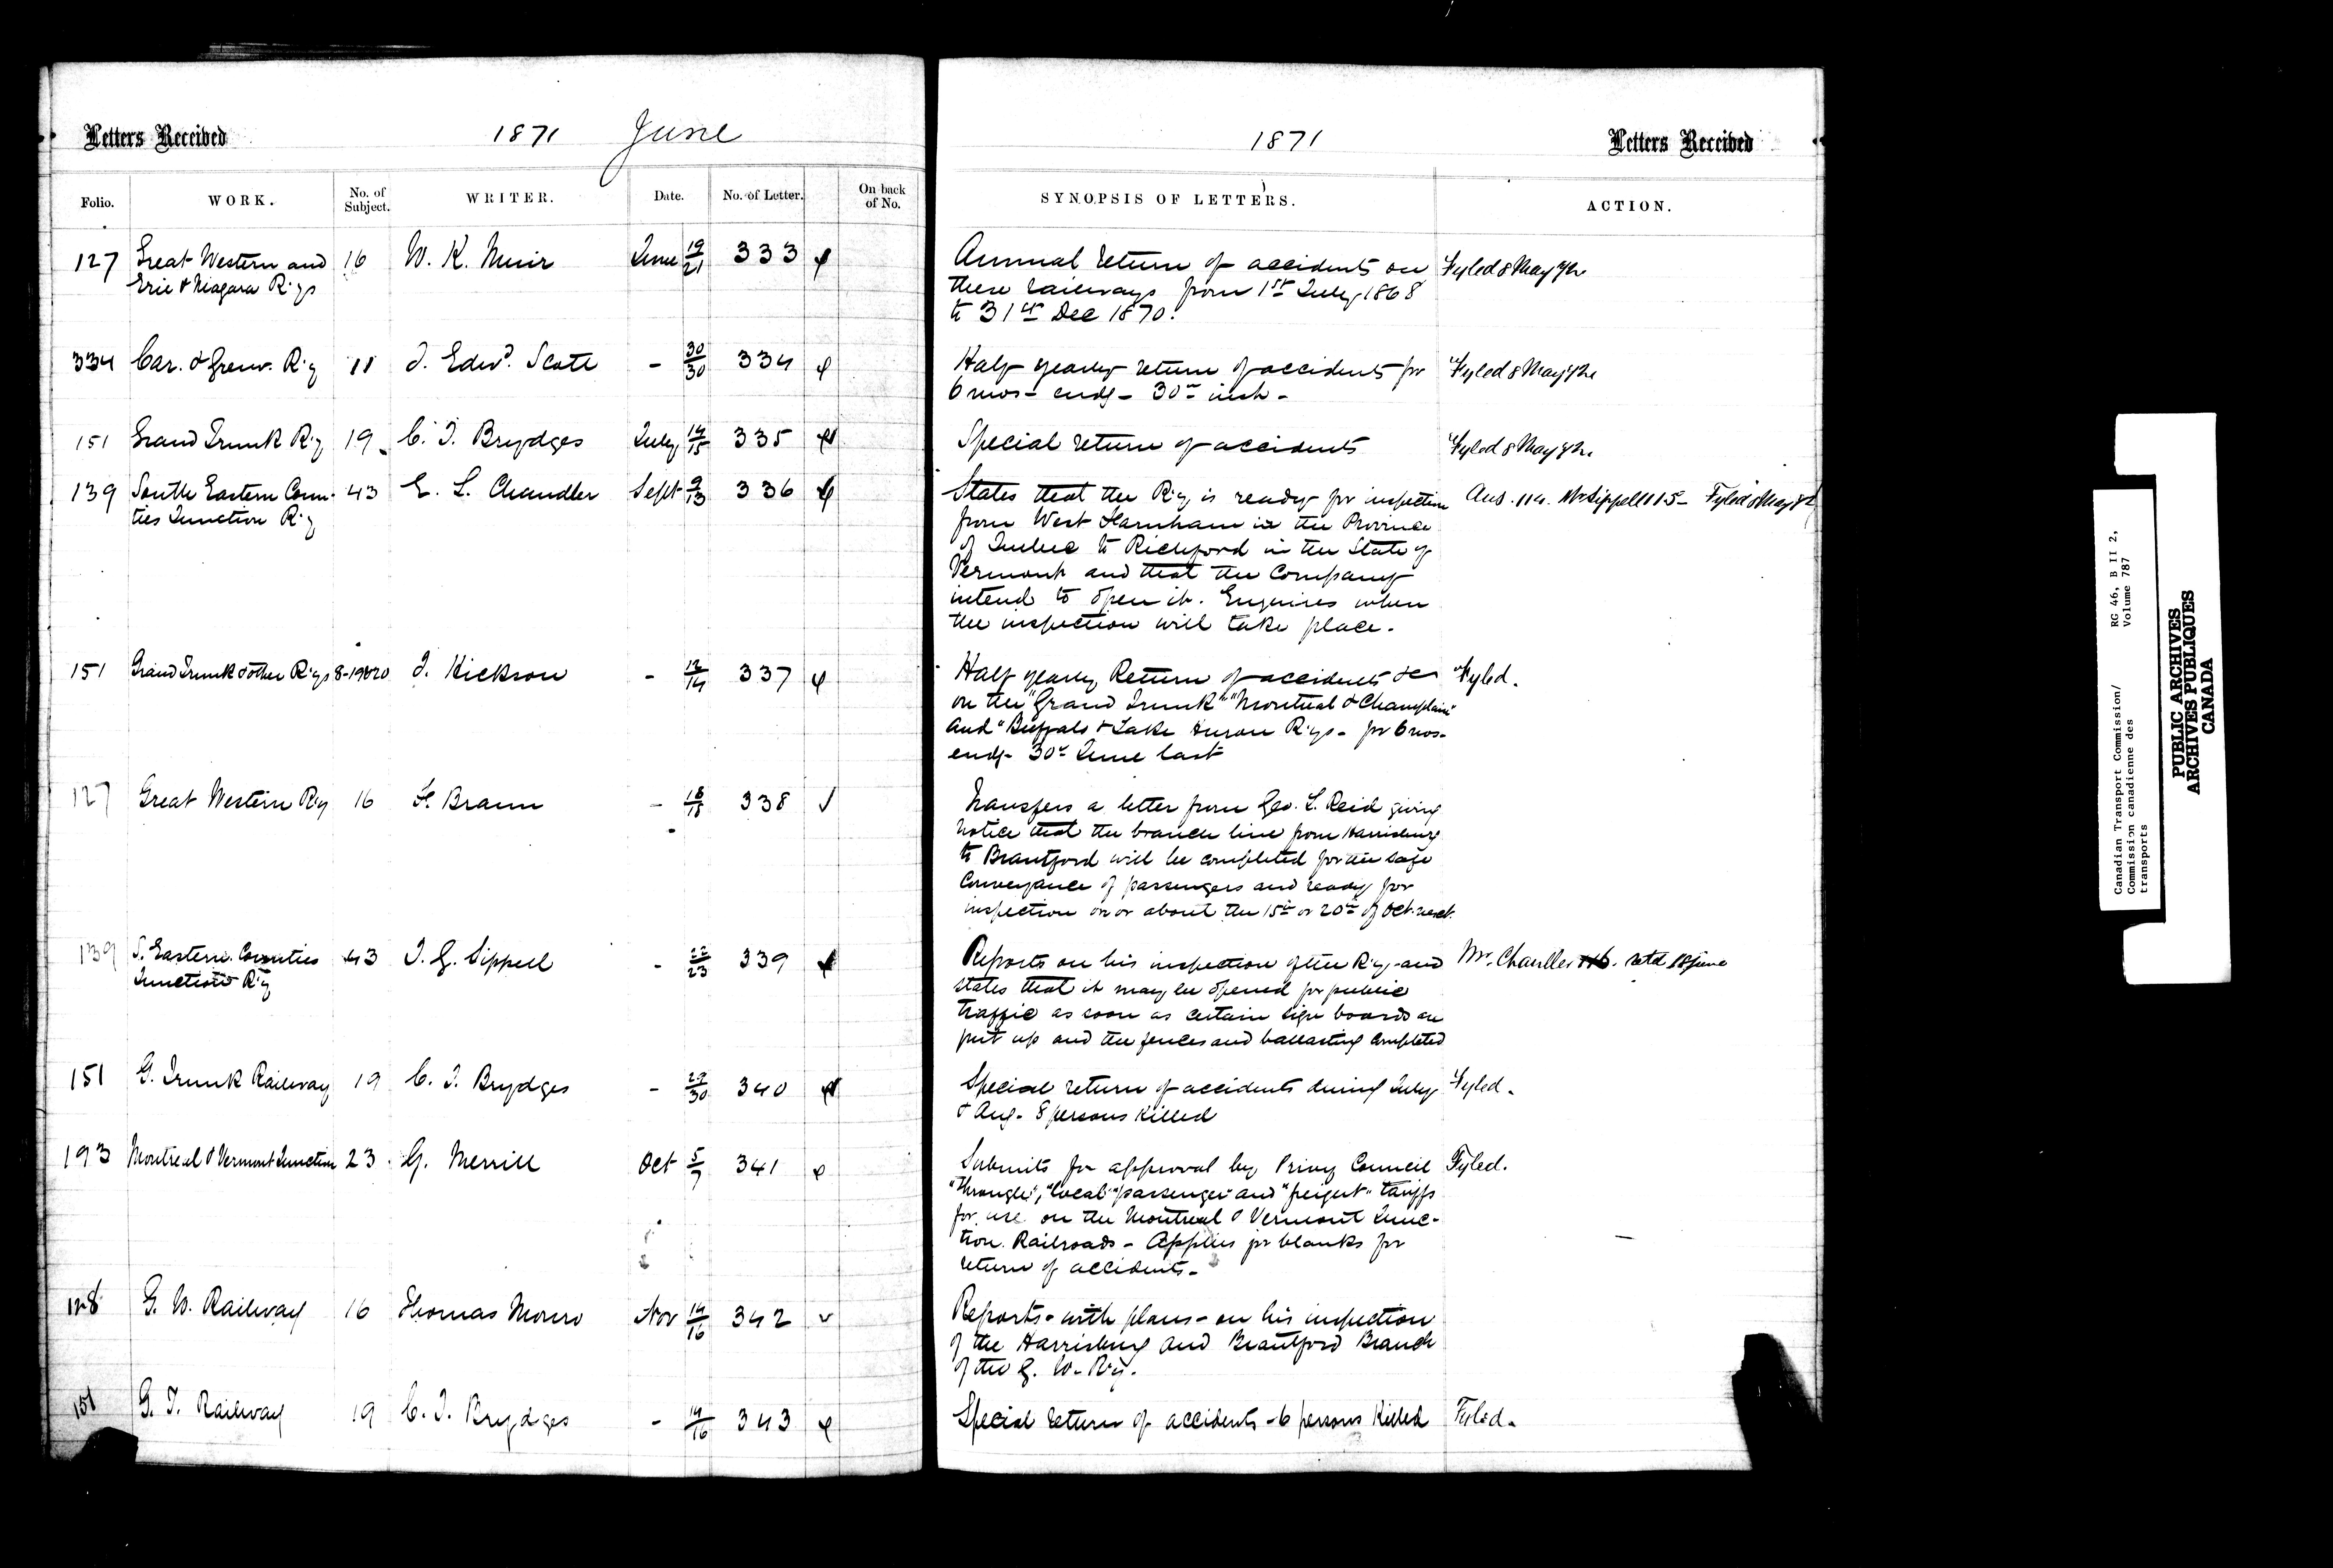 Letters Received 1871 June
Folio. WORK. No. of Subject. WRITER. Date. No. of Letter. On back of No.
127 Great Western and 16 W. K. Muir June 19/21 333
Erie & Niagara Rys
334 Car. & Gren. Ry 11 J. Edwd. Scott - 30/30 334
151 Grand Trunk Ry 19 C. J. Brydges July 14/15 335
139 South Eastern Coun- 43 E. L. Chandler Sept 9/13 336
ties Junction Ry
151 Grand Trunk & other Rys 8-19&20 J. Hickson - 12/14 337
127 Great Western Ry 16 F. Braun - 18/18 338
139 S. Eastern Counties 43 J. G. Sippell - 22/23 339
Junction Ry
151 G. Trunk Railway 19 C. J. Brydges - 29/30 340
193 Montreal & Vermont Junction 23 G. Merrill Oct 5/7 341
128 G. W. Railway 16 Thomas Monro Nov 14/16 342
151 G. T. Railway 19 C. J. Brydges - 14/16 343
1871 Letters Received
SYNOPSIS OF LETTERS. ACTION.
Annual return of accidents on Fyled 8 May 72
these railways from 1st July 1868
to 31st Dec 1870.
Half yearly return of accidents for Fyled 8 May 72
6 mos- endg- 30th inst-
Special return of accidents Fyled 8 May 72
States that the Ry is ready for inspection Ans. 114. Mr Sippell 115- Fyled 8 May 72
from West Farnham in the Province
of Quebec to Richford in the State of
Vermont and that the Company
intend to open it. Enquires when
the inspection will take place.
Half yearly Return of accidents &c Fyled.
on the "Grand Trunk" "Montreal & Champlain"
and "Buffalo & Lake Huron Rys- for 6 mos-
endg- 30th June last
Transfers a letter from Geo. L. Reid giving
notice that the branch line from Harrisburg
to Brantford will be completed for the safe
Conveyance of passengers and ready for
inspection on or about the 15th or 20th of Oct. next.
Reports on his inspection of the Ry and Mr. Chandler 116. retd 18 June
states that it may be opened for public
traffic as soon as certain sign boards are
put up and the fences and ballasting completed
Special return of accidents during July Fyled.
& Aug- 8 persons killed
Submits for approval by Privy Council Fyled.
"Through", "local" "passenger" and "freight" tariffs
for use on the Montreal & Vermont Junc-
tion Railroads - Applies for blanks for
return of accidents-
Reports- with plans- on his inspection
of the Harrisburg and Brantford Branch
of the G. W. Ry.
Special return of accidents - 6 persons killed Fyled.
Canadian Transport Commission/ RG 46, B II 2,
Commission canadienne des Volume 787
transports
PUBLIC ARCHIVES
ARCHIVES PUBLIQUES
CANADA